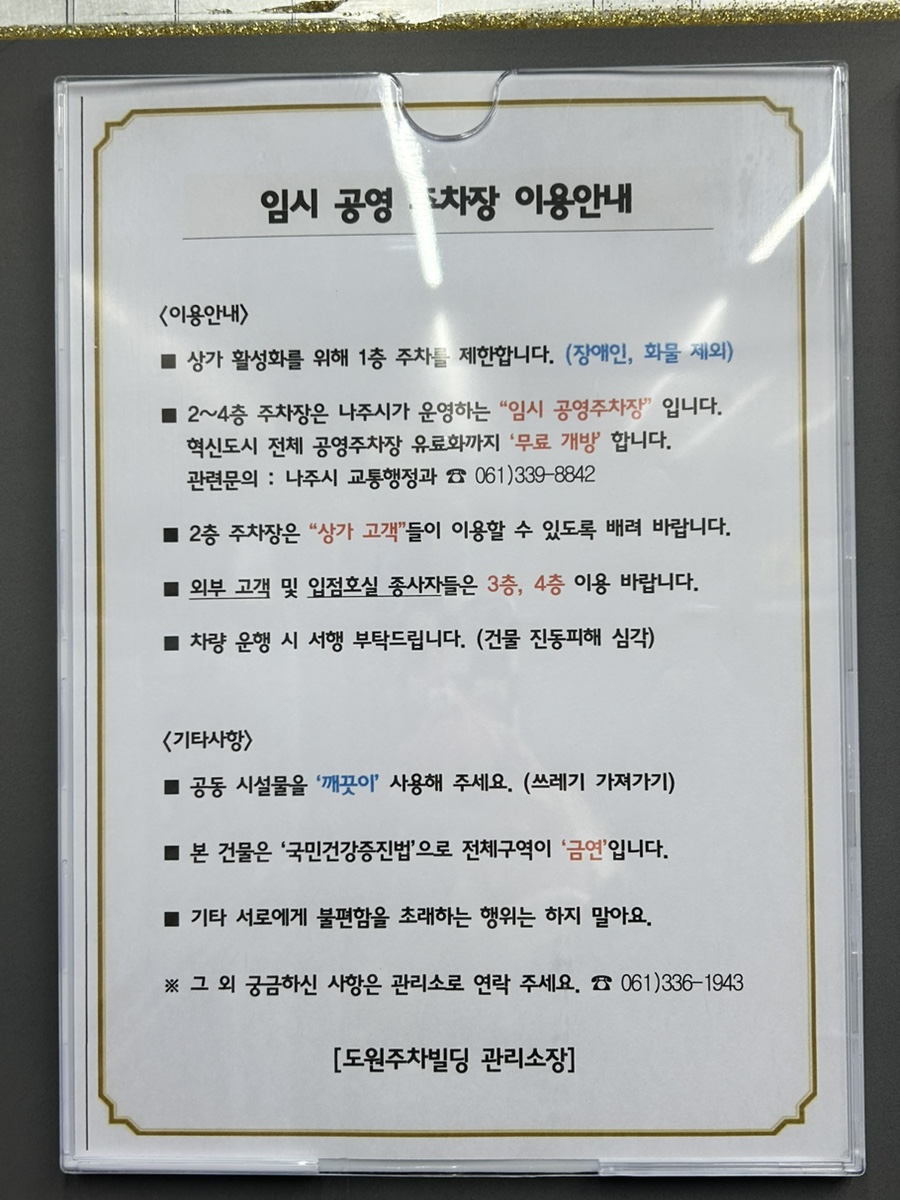 임시 공영 주차장 이용안내
〈이용안내〉
■ 상가 활성화를 위해 1층 주차를 제한합니다. (장애인, 화물 제외)
■ 2~4층 주차장은 나주시가 운영하는 “임시 공영주차장” 입니다.
혁신도시 전체 공영주차장 유료화까지 ‘무료 개방’ 합니다.
관련문의 : 나주시 교통행정과 ☎ 061)339-8842
■ 2층 주차장은 “상가 고객”들이 이용할 수 있도록 배려 바랍니다.
■ 외부 고객 및 입점호실 종사자들은 3층, 4층 이용 바랍니다.
■ 차량 운행 시 서행 부탁드립니다. (건물 진동피해 심각)
〈기타사항〉
■ 공동 시설물을 ‘깨끗이’ 사용해 주세요. (쓰레기 가져가기)
■ 본 건물은 ‘국민건강증진법’으로 전체구역이 ‘금연’입니다.
■ 기타 서로에게 불편함을 초래하는 행위는 하지 말아요.
※ 그 외 궁금하신 사항은 관리소로 연락 주세요. ☎ 061)336-1943
[도원주차빌딩 관리소장]